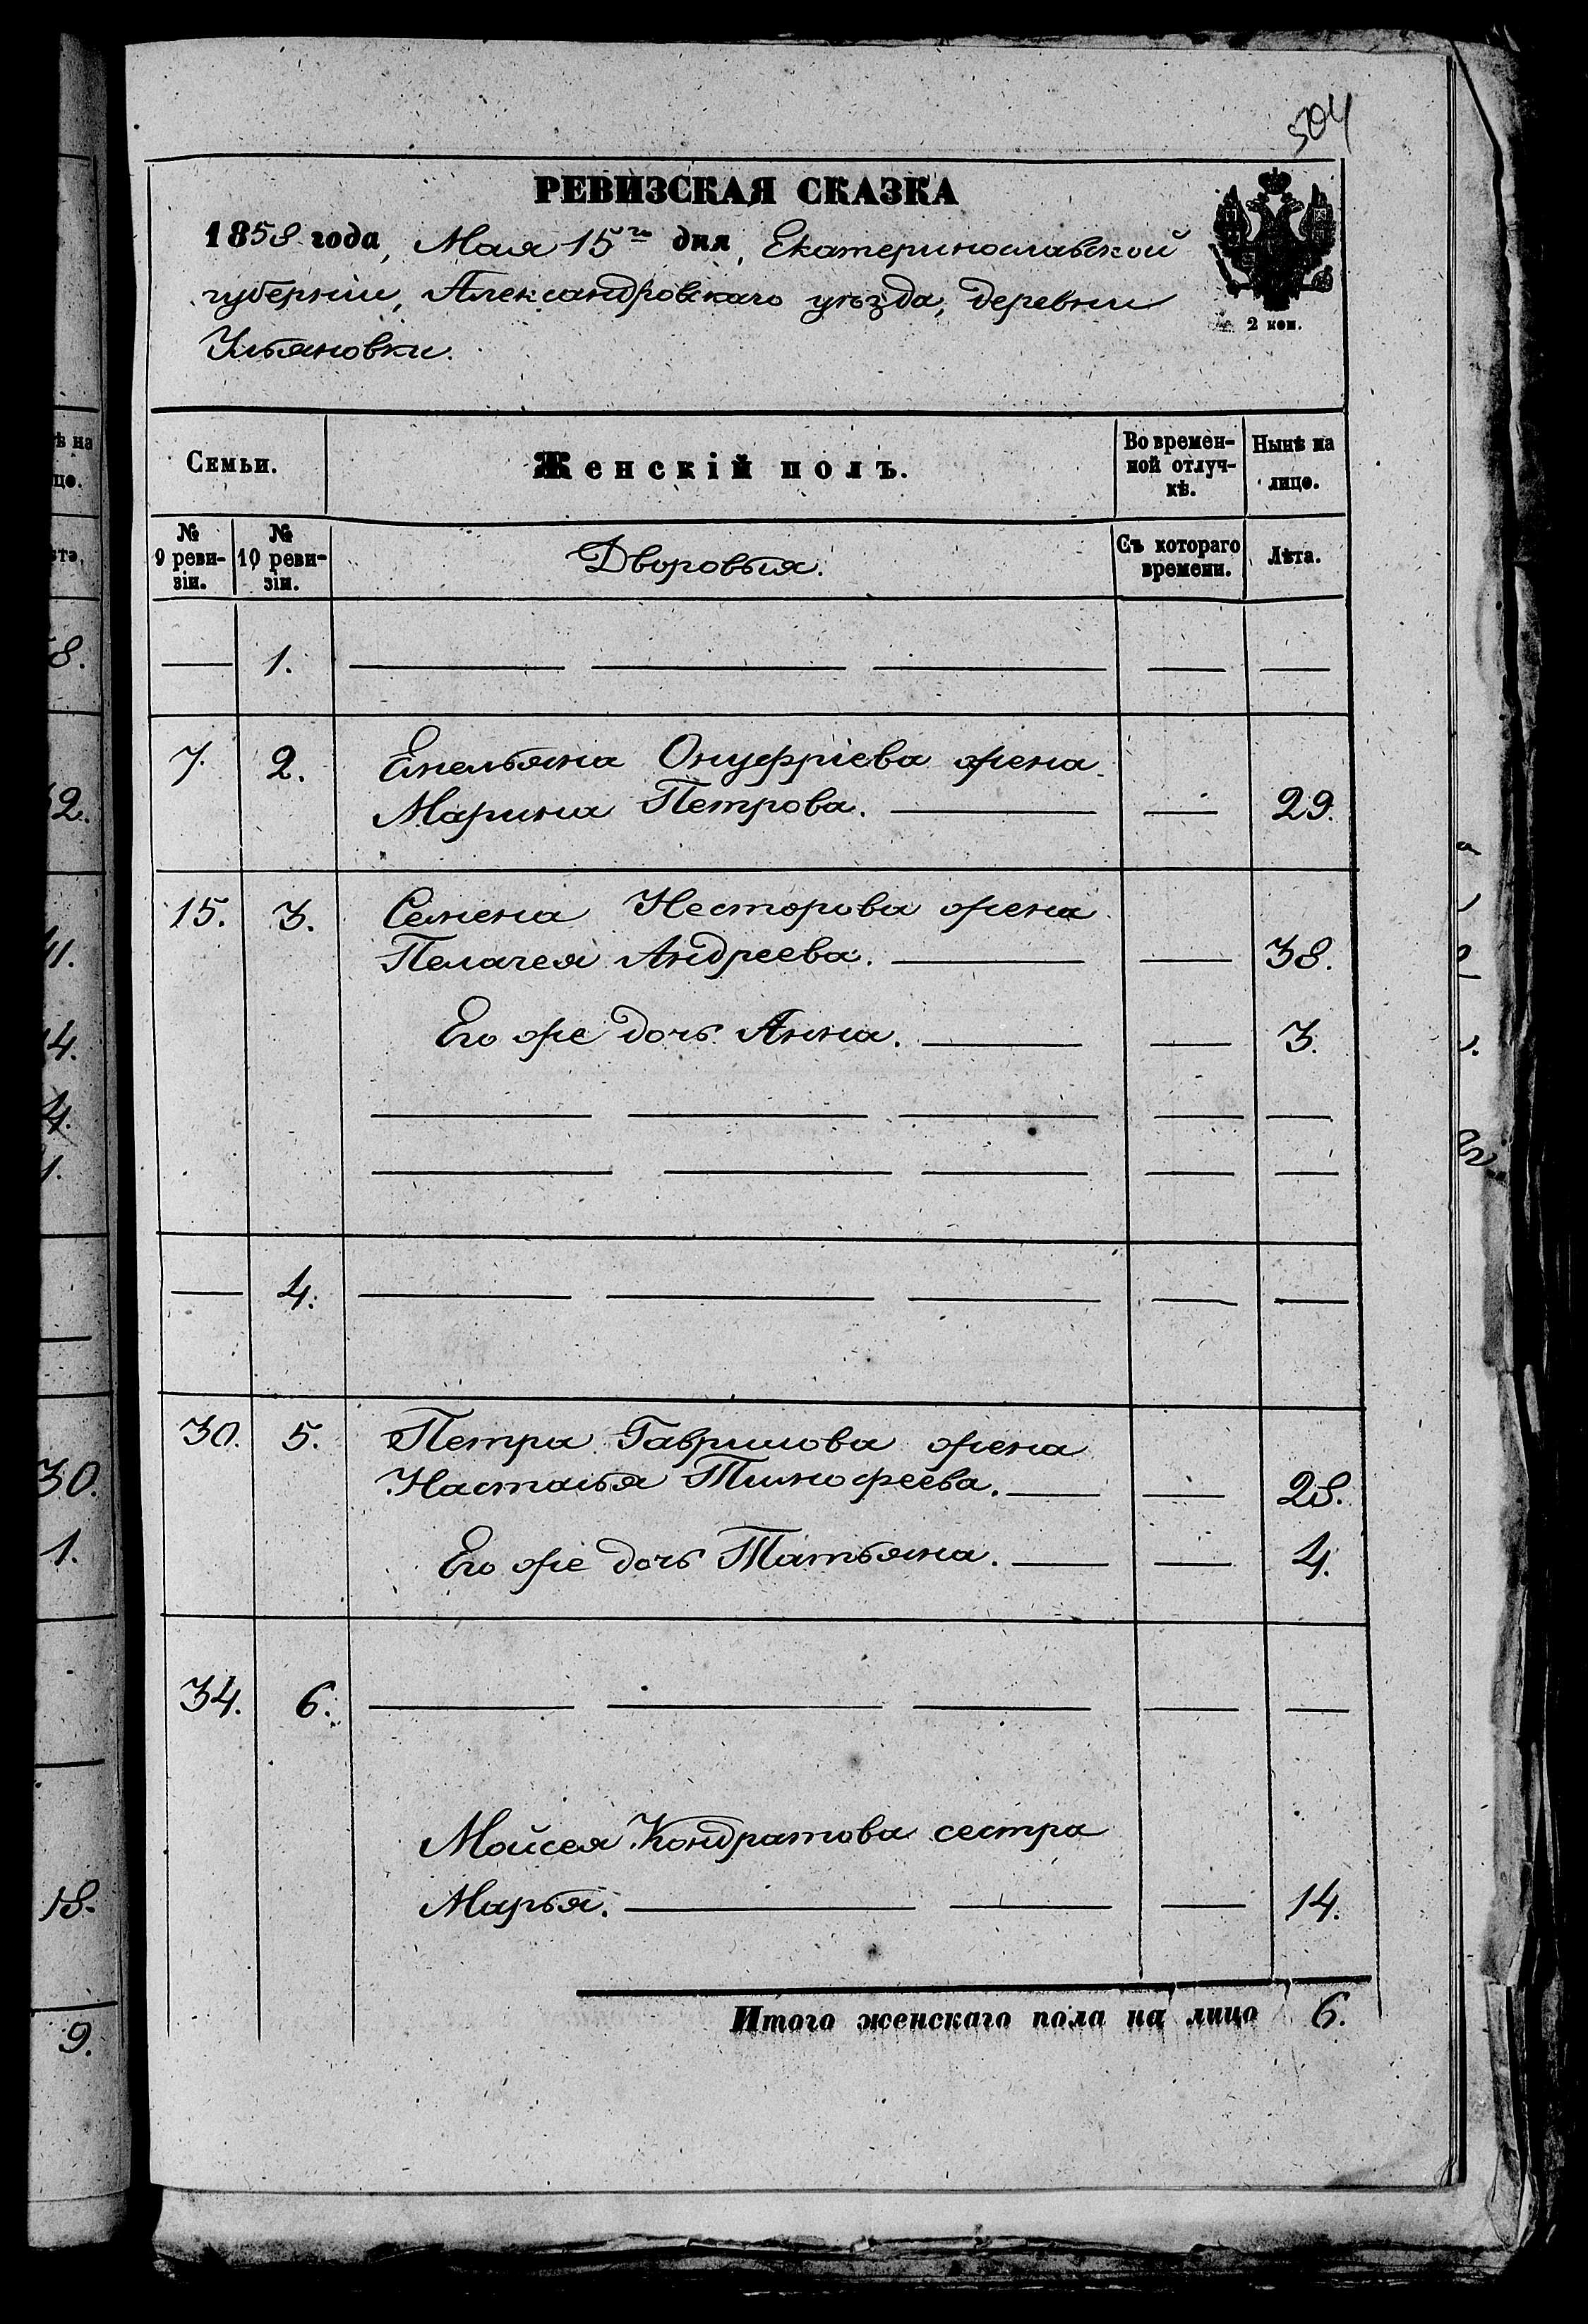 504
РЕВИЗСКАЯ СКАЗКА
1858 года, Мая 15го дня, Екатеринославской
губерніи, Александровскаго уѣзда, деревни
Ульяновки.
2 коп.
Семьи.
Женскій полъ.
Во времен-
ной отлуч-
кѣ.
Нынѣ на
лицо.
№
9 реви-
зіи.
№
10 реви-
зіи.
Дворовыя.
Съ котораго
времени.
Лѣта.
— 1. — — — — —
7. 2. Емельяна Онуфріева жена
Марина Петрова. — — 29.
15. 3. Семена Несторова жена
Пелагея Андреева. — — 38.
Его же дочь Анна. — — 3.
— — — — —
— — — — —
— 4. — — — — —
30. 5. Петра Гаврилова жена
Настасья Тимофеева. — — 28.
Его же дочь Татьяна. — — 4.
34. 6. — — — — —
Мойсея Кондратова сестра
Марья. — — — 14.
Итого женскаго пола на лицо 6.
ѣ на
цо.
та.
8.
2.
4.
4.
1.
30.
1.
18.
9.